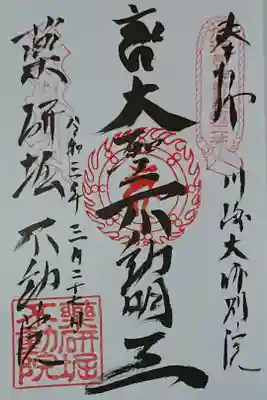 奉拝
川崎大師別院
大聖不動明王
令和三年 三月二十七日
薬研堀不動院
薬研堀
不動院